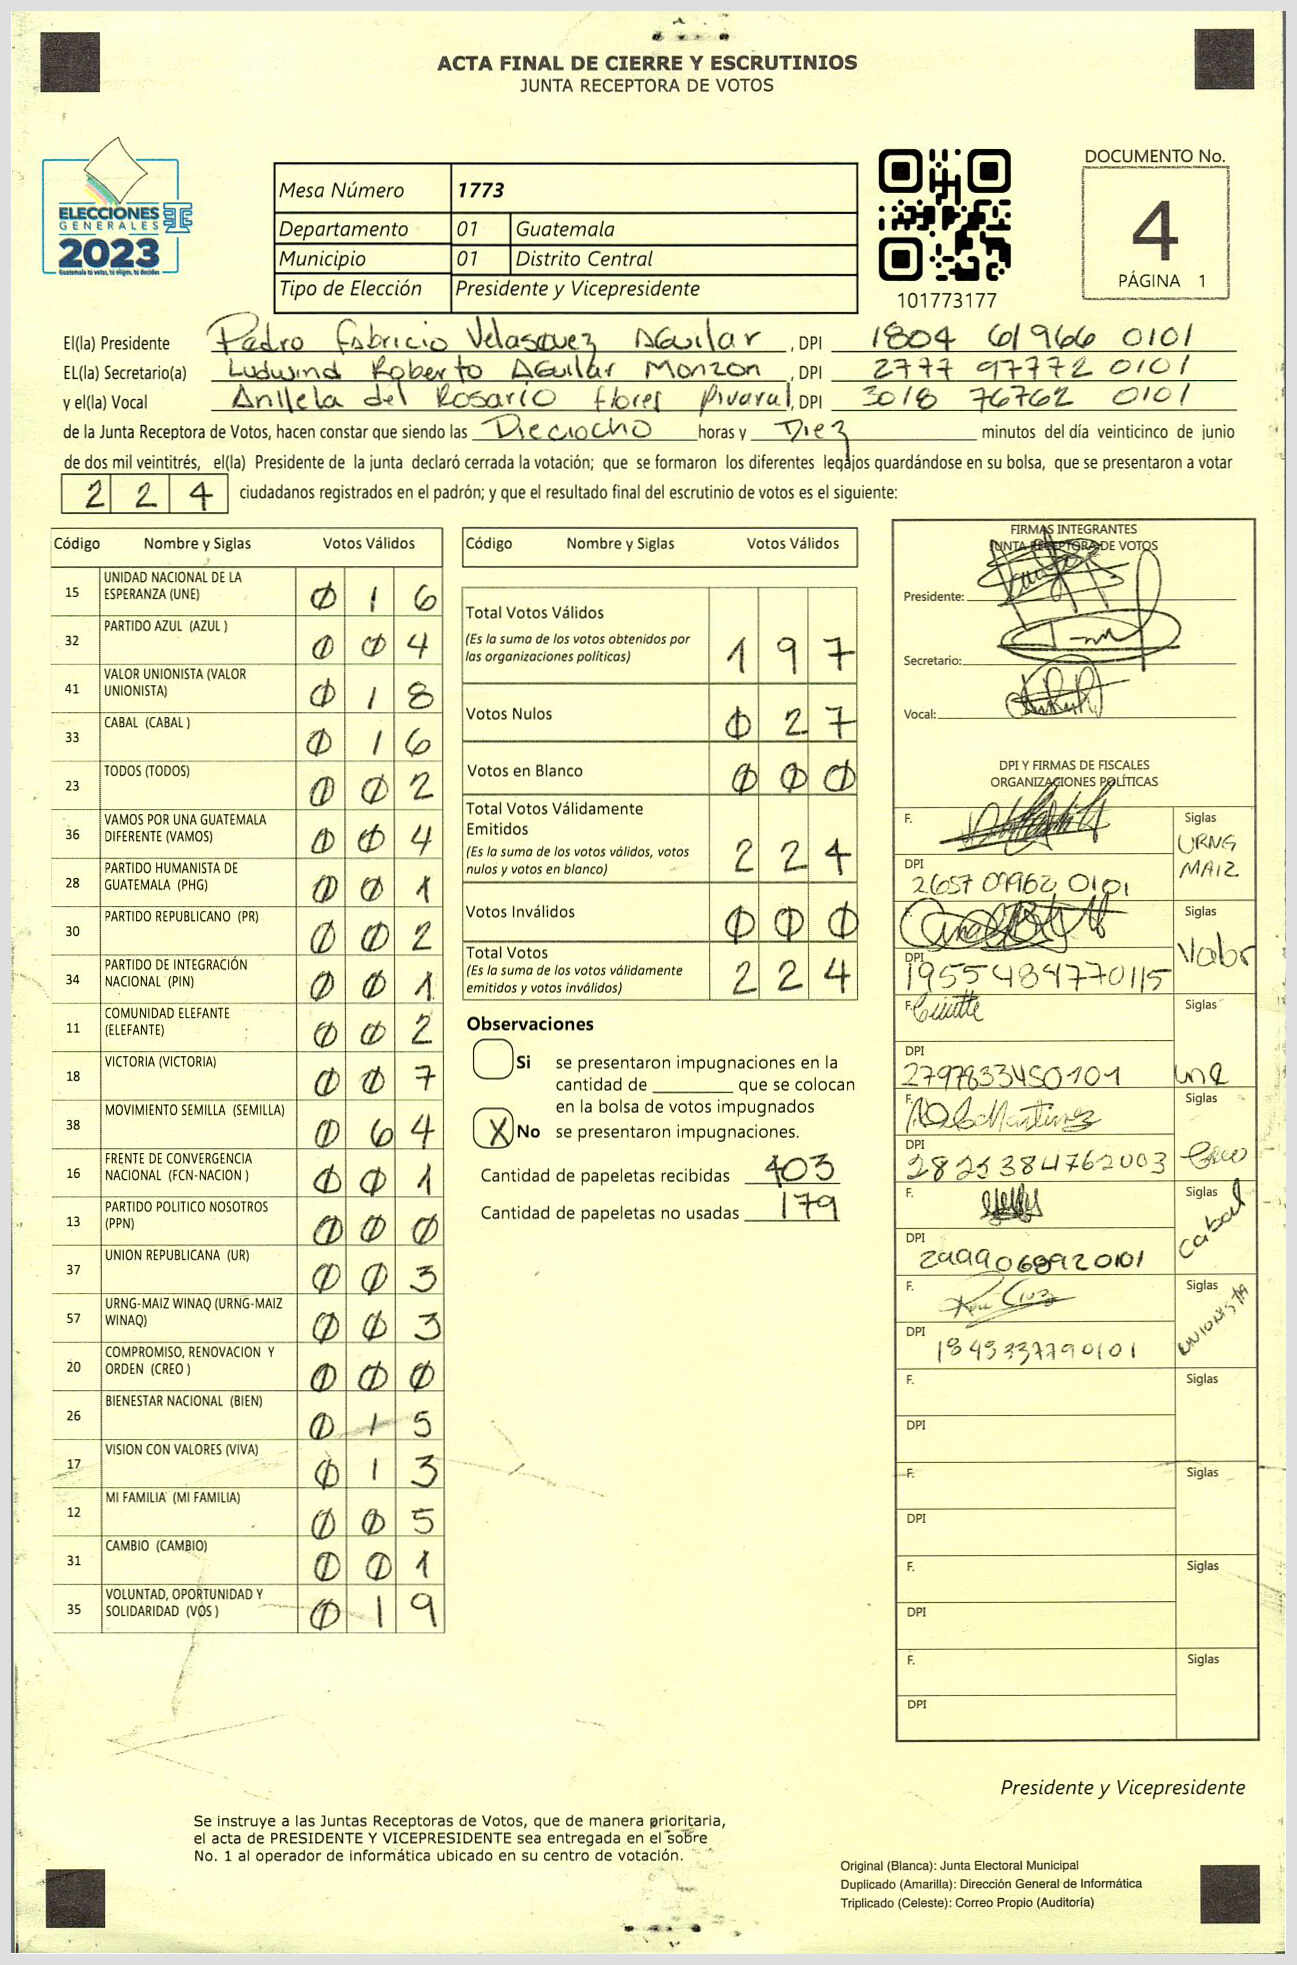 ACTA FINAL DE CIERRE Y ESCRUTINIOS
JUNTA RECEPTORA DE VOTOS
ELECCIONES
GENERALES
2023
Guatemala tú votas, tú eliges, tú decides
Mesa Número 1773
Departamento 01 Guatemala
Municipio 01 Distrito Central
Tipo de Elección Presidente y Vicepresidente
101773177
DOCUMENTO No.
4
PÁGINA 1
El(la) Presidente Pedro Fabricio Velasquez Aguilar, DPI 1804 61966 0101
EL(la) Secretario(a) Ludwind Roberto Aguilar Monzon, DPI 2777 97772 0101
y el(la) Vocal del Rosario Flores Pivaral, DPI 3018 76762 0101
de la Junta Receptora de Votos, hacen constar que siendo las Dieciocho horas y Diez minutos del día veinticinco de junio
de dos mil veintitrés, el(la) Presidente de la junta declaró cerrada la votación; que se formaron los diferentes legajos guardándose en su bolsa, que se presentaron a votar
224 ciudadanos registrados en el padrón; y que el resultado final del escrutinio de votos es el siguiente:
Código Nombre y Siglas Votos Válidos
15 UNIDAD NACIONAL DE LA ESPERANZA (UNE) 0 1 6
32 PARTIDO AZUL (AZUL ) 0 0 4
41 VALOR UNIONISTA (VALOR UNIONISTA) 0 1 8
33 CABAL (CABAL ) 0 1 6
23 TODOS (TODOS) 0 0 2
36 VAMOS POR UNA GUATEMALA DIFERENTE (VAMOS) 0 0 4
28 PARTIDO HUMANISTA DE GUATEMALA (PHG) 0 0 1
30 PARTIDO REPUBLICANO (PR) 0 0 2
34 PARTIDO DE INTEGRACIÓN NACIONAL (PIN) 0 0 1
11 COMUNIDAD ELEFANTE (ELEFANTE) 0 0 2
18 VICTORIA (VICTORIA) 0 0 7
38 MOVIMIENTO SEMILLA (SEMILLA) 0 6 4
16 FRENTE DE CONVERGENCIA NACIONAL (FCN-NACION ) 0 0 1
13 PARTIDO POLITICO NOSOTROS (PPN) 0 0 0
37 UNION REPUBLICANA (UR) 0 0 3
57 URNG-MAIZ WINAQ (URNG-MAIZ WINAQ) 0 0 3
20 COMPROMISO, RENOVACION Y ORDEN (CREO ) 0 0 0
26 BIENESTAR NACIONAL (BIEN) 0 1 5
17 VISION CON VALORES (VIVA) 0 1 3
12 MI FAMILIA (MI FAMILIA) 0 0 5
31 CAMBIO (CAMBIO) 0 0 1
35 VOLUNTAD, OPORTUNIDAD Y SOLIDARIDAD (VOS ) 0 1 9
Código Nombre y Siglas Votos Válidos
Total Votos Válidos
(Es la suma de los votos obtenidos por
las organizaciones políticas) 1 9 7
Votos Nulos 0 2 7
Votos en Blanco 0 0 0
Total Votos Válidamente
Emitidos
(Es la suma de los votos válidos, votos
nulos y votos en blanco) 2 2 4
Votos Inválidos 0 0 0
Total Votos
(Es la suma de los votos válidamente
emitidos y votos inválidos) 2 2 4
Observaciones
Si se presentaron impugnaciones en la
cantidad de ________ que se colocan
en la bolsa de votos impugnados
X No se presentaron impugnaciones.
Cantidad de papeletas recibidas 403
Cantidad de papeletas no usadas 179
FIRMAS INTEGRANTES
JUNTA RECEPTORA DE VOTOS
Presidente:
Secretario:
Vocal:
DPI Y FIRMAS DE FISCALES
ORGANIZACIONES POLÍTICAS
F. Siglas URNG MAIZ
DPI 2657 09962 0101
Siglas Valor
DPI 1955484770115
F. Siglas une
DPI 2797833450101
F. Siglas Creo
DPI 2825384762003
F. Siglas Cabal
DPI 2999068920101
F. Siglas UNIONISTA
DPI 1849337790101
F. Siglas
DPI
F. Siglas
DPI
F. Siglas
DPI
F. Siglas
DPI
Presidente y Vicepresidente
Se instruye a las Juntas Receptoras de Votos, que de manera prioritaria,
el acta de PRESIDENTE Y VICEPRESIDENTE sea entregada en el sobre
No. 1 al operador de informática ubicado en su centro de votación.
Original (Blanca): Junta Electoral Municipal
Duplicado (Amarilla): Dirección General de Informática
Triplicado (Celeste): Correo Propio (Auditoría)